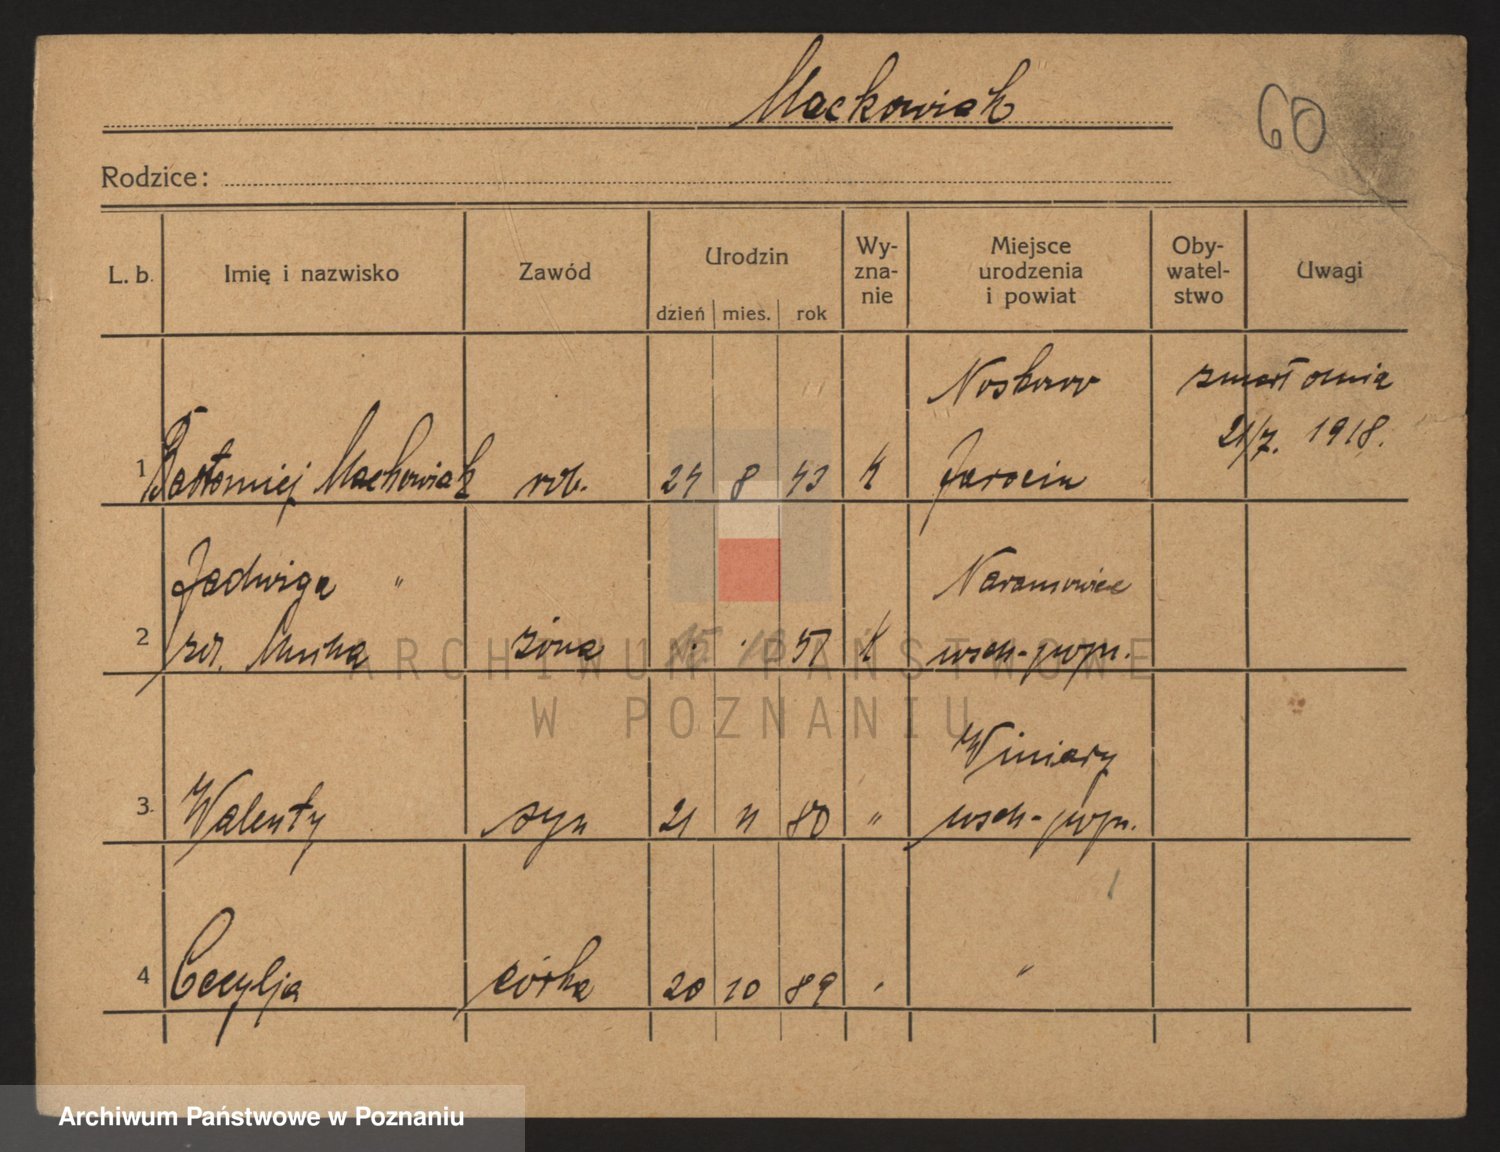 Mackowiak
60
Rodzice:
L. b.
Imię i nazwisko
Zawód
Urodzin
dzień mies. rok
Wy-
zna-
nie
Miejsce
urodzenia
i powiat
Oby-
watel-
stwo
Uwagi
Noskowo zmarł dnia
21/7. 1918.
1 Bartłomiej Mackowiak rob. 24 8 43 K Jarocin
Jadwiga " Naramowice
2 żona 15. 10 57 K wsch-pozn.
Winiary
3. Walenty syn 21 11 80 " wsch-pozn.
4 Cecylja córka 20 10 89 " "
ARCHIWUM PAŃSTWOWE
W POZNANIU
Archiwum Państwowe w Poznaniu